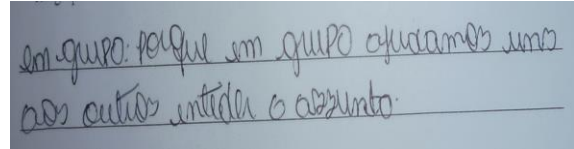 em grupo. porque em grupo ajudamos uns
aos outros intider o assunto.